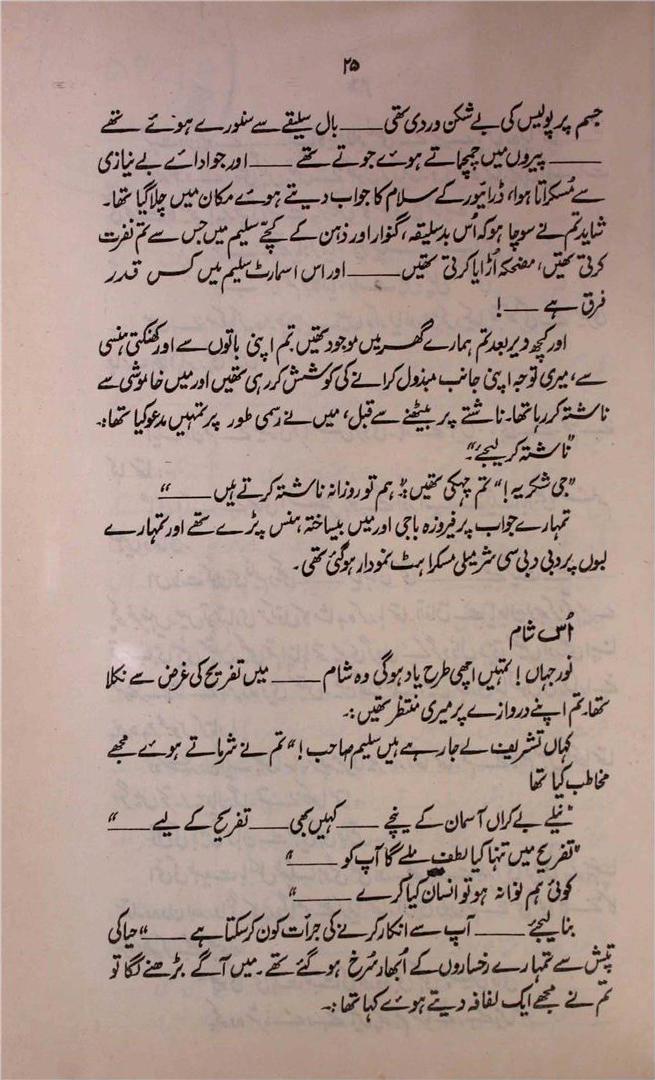 ۲۵
جسم پر پولیس کی بے شکن وردی تھی ــــ بال سلیقے سے سنورے ہوئے تھے
ــــ پیروں میں چمچماتے ہوئے جوتے تھے ــــ اور جو ادائے بے نیازی
سے مُسکراتا ہوا، ڈرائیور کے سلام کا جواب دیتے ہوئے مکان میں چلا گیا تھا۔
شاید تم نے سوچا ہو کہ اُس بد سلیقہ، گنوار اور ذہن کے کچّے سلیم میں جس سے تم نفرت
کرتی تھیں، مضحکہ اُڑایا کرتی تھیں ــــ اور اس اسمارٹ سلیم میں کس قدر
فرق ہے ــــ!
اور کچھ دیر بعد تم ہمارے گھر میں موجود تھیں تم اپنی باتوں سے اور کھنکتی ہنسی
سے، میری توجہ اپنی جانب مبذول کرانے کی کوشش کر رہی تھیں اور میں خاموشی سے
ناشتہ کر رہا تھا۔ ناشتے پر بیٹھنے سے قبل، میں نے رسمی طور پر تمہیں مدعو کیا تھا:۔
"ناشتہ کر لیجئے"۔
"جی شکریہ!" تم چہکی تھیں:۔ "ہم تو روزانہ ناشتہ کرتے ہیں ــــ"
تمہارے جواب پر فیروزہ باجی اور میں بیساختہ ہنس پڑے تھے اور تمہارے
لبوں پر دبی دبی سی شرمیلی مسکراہٹ نمودار ہو گئی تھی۔
اُس شام
نور جہاں! تمہیں اچھی طرح یاد ہوگی وہ شام ــــ میں تفریح کی غرض سے نکلا
تھا۔ تم اپنے دروازے پر میری منتظر تھیں:۔
کہاں تشریف لے جا رہے ہیں سلیم صاحب!" تم نے شرماتے ہوئے مجھے
مخاطب کیا تھا
"نیلے بے کراں آسمان کے نیچے ــــ کہیں بھی ــــ تفریح کے لیے ــــ"
"تفریح میں تنہا کیا لطف ملے گا آپ کو ــــ"
کوئی ہم نوا نہ ہو تو انسان کیا کرے ــــ"
بنا لیجئے ــــ آپ سے انکار کرنے کی جرأت کون کر سکتا ہے ــــ" حیا کی
تپش سے تمہارے رخساروں کے اُبھار سُرخ ہو گئے تھے۔ میں آگے بڑھنے لگا تو
تم نے مجھے ایک لفافہ دیتے ہوئے کہا تھا:۔